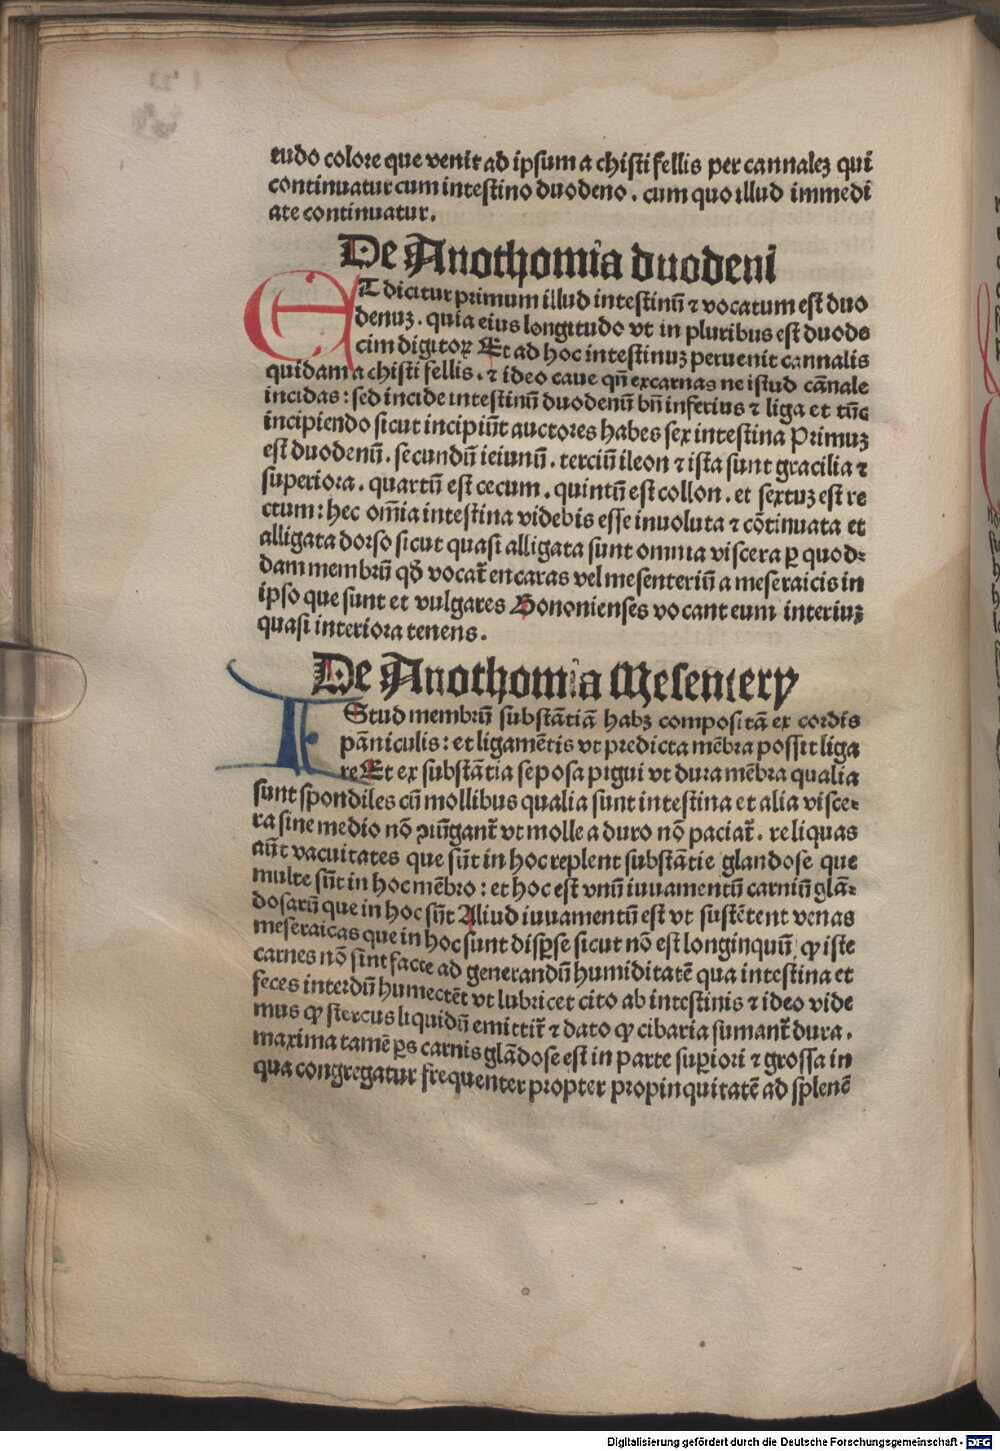 tudo colore que venit ad ipsum a chisti fellis per cannalez qui
continuatur cum intestino duodeno. cum quo illud immedi
ate continuatur.
De Anothomia duodeni
ET dicitur primum illud intestinū ⁊ vocatum est duo
denuʒ. quia eius longitudo vt in pluribus est duode
cim digitoꝝ Et ad hoc intestinuʒ peruenit cannalis
quidam a chisti fellis. ⁊ ideo caue qn̄ excarnas ne istud cānale
incidas: sed incide intestinū duodenū bn̄ inferius ⁊ liga et tūc
incipiendo sicut incipiūt auctores habes sex intestina Primuʒ
est duodenū. secundū ieiunū. terciū ileon ⁊ ista sunt gracilia ⁊
superiora. quartū est cecum. quintū est collon. et sextuʒ est re
ctum: hec om̄ia intestina videbis esse inuoluta ⁊ cōtinuata et
alligata dorso sicut quasi alligata sunt omnia viscera ꝑ quod-
dam membrū qd̄ vocat̄ encaras vel mesenteriū a meseraicis in
ipso que sunt et vulgares Bononienses vocant eum interiuʒ
quasi interiora tenens.
De Anothomia Mesentery
IStud membrū substātiā habʒ compositā ex cordis
pāniculis: et ligamētis vt predicta mēbra possit liga
re Et ex substātia seposa pīgui vt dura mēbra qualia
sunt spondiles cū mollibus qualia sunt intestina et alia visce-
ra sine medio nō ꝯiūgant̄ vt molle a duro nō paciat̄. reliquas
aūt vacuitates que sūt in hoc replent substātie glandose que
multe sūt in hoc mēbro: et hoc est vnū iuuamentū carniū glā-
dosarū que in hoc sūt Aliud iuuamentū est vt sustētent venas
meseraicas que in hoc sunt disꝑse sicut nō est longinquū ꝙ iste
carnes nō sint facte ad generandū humiditatē qua intestina et
feces interdū humectēt vt lubricet cito ab intestinis ⁊ ideo vide
mus ꝙ stercus liquidū emittit̄ ⁊ dato ꝙ cibaria sumant̄ dura.
maxima tamē ꝑs carnis glādose est in parte suꝑiori ⁊ grossa in
qua congregatur frequenter propter propinquitatē ad splenē
Digitalisierung gefördert durch die Deutsche Forschungsgemeinschaft - DFG